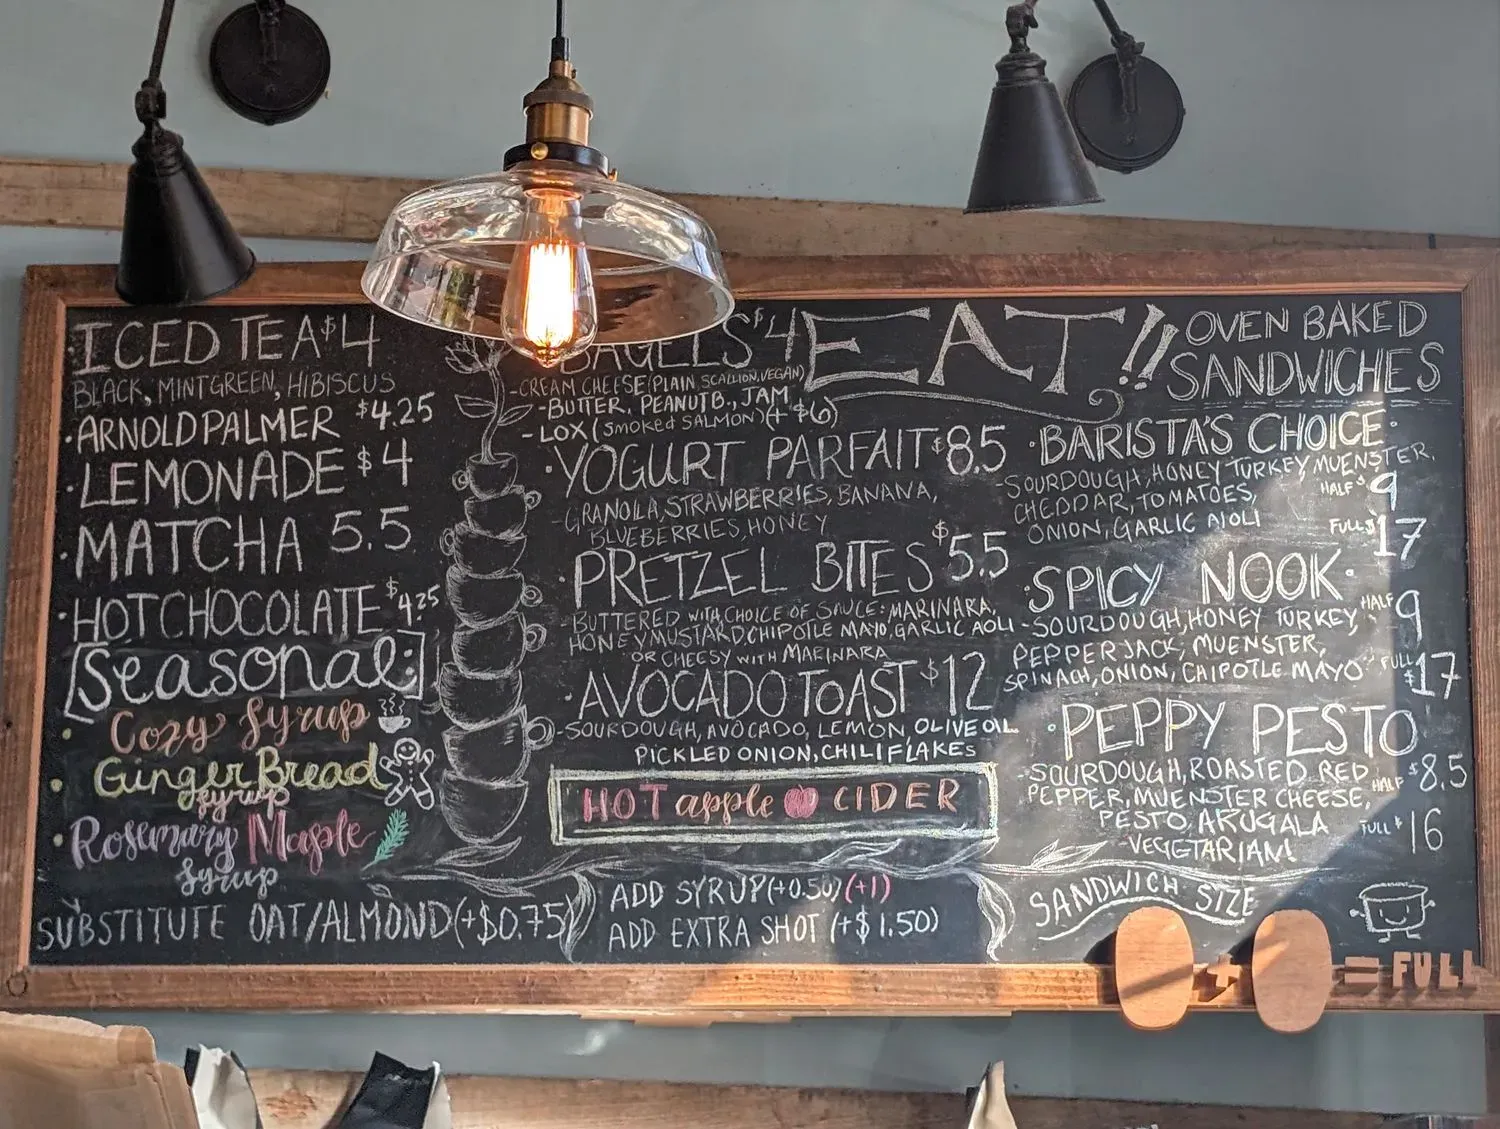 ICED TEA $4
BLACK, MINTGREEN, HIBISCUS
·ARNOLD PALMER $4.25
·LEMONADE $4
·MATCHA 5.5
·HOT CHOCOLATE $4.25
[Seasonal:]
· Cozy Syrup
· GingerBread
Syrup
· Rosemary Maple
Syrup
SUBSTITUTE OAT/ALMOND (+$0.75)
BAGELS $4
-CREAM CHEESE (PLAIN, SCALLION, VEGAN)
-BUTTER, PEANUTB., JAM
-LOX (SMOKED SALMON) (+ $6)
·YOGURT PARFAIT $8.5
-GRANOLA, STRAWBERRIES, BANANA,
BLUEBERRIES, HONEY
·PRETZEL BITES $5.5
-BUTTERED WITH CHOICE OF SAUCE: MARINARA,
HONEY MUSTARD, CHIPOTLE MAYO, GARLIC AOLI
OR CHEESY WITH MARINARA
·AVOCADO TOAST $12
-SOURDOUGH, AVOCADO, LEMON, OLIVE OIL
PICKLED ONION, CHILI FLAKES
HOT apple CIDER
ADD SYRUP (+0.50) (+1)
ADD EXTRA SHOT (+$1.50)
EAT!!
OVEN BAKED
SANDWICHES
·BARISTA'S CHOICE·
-SOURDOUGH, HONEY TURKEY, MUENSTER,
CHEDDAR, TOMATOES,
ONION, GARLIC AIOLI
HALF $9
FULL $17
·SPICY NOOK·
-SOURDOUGH, HONEY TURKEY,
PEPPERJACK, MUENSTER,
SPINACH, ONION, CHIPOTLE MAYO
HALF $9
FULL $17
·PEPPY PESTO·
-SOURDOUGH, ROASTED RED
PEPPER, MUENSTER CHEESE,
PESTO, ARUGALA
VEGETARIAN!
HALF $8.5
FULL $16
SANDWICH SIZE
+ = FULL